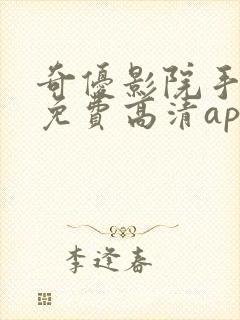 奇優影院手
免費高清ap
李逢春